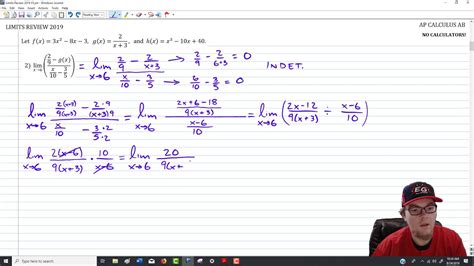 LIMITS REVIEW 2019
AP CALCULUS AB
NO CALCULATORS!
Let f(x) = 3x² − 8x − 3, g(x) = 2/(x + 3), and h(x) = x² − 10x + 40.
2) lim x→6 ((2/9 − g(x))/(x/10 − 3/5)) = lim x→6 (2/9 − 2/(x+3))/(x/10 − 3/5) → 2/9 − 2/(6+3) = 0
→ 6/10 − 3/5 = 0
INDET.
lim x→6 (2(x+3)/(9(x+3)) − 2·9/((x+3)9))/(x/10 − 3·2/(5·2)) = lim x→6 ((2x+6−18)/(9(x+3)))/((x−6)/10) = lim x→6 ((2x−12)/(9(x+3)) ÷ (x−6)/10)
lim x→6 2(x−6)/(9(x+3)) · 10/(x−6) = lim x→6 20/(9(x+
EG